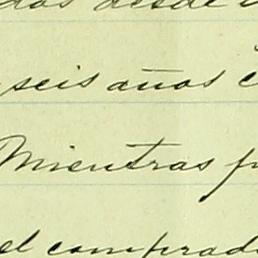 dos desde
seis años
Mientras
el comprad